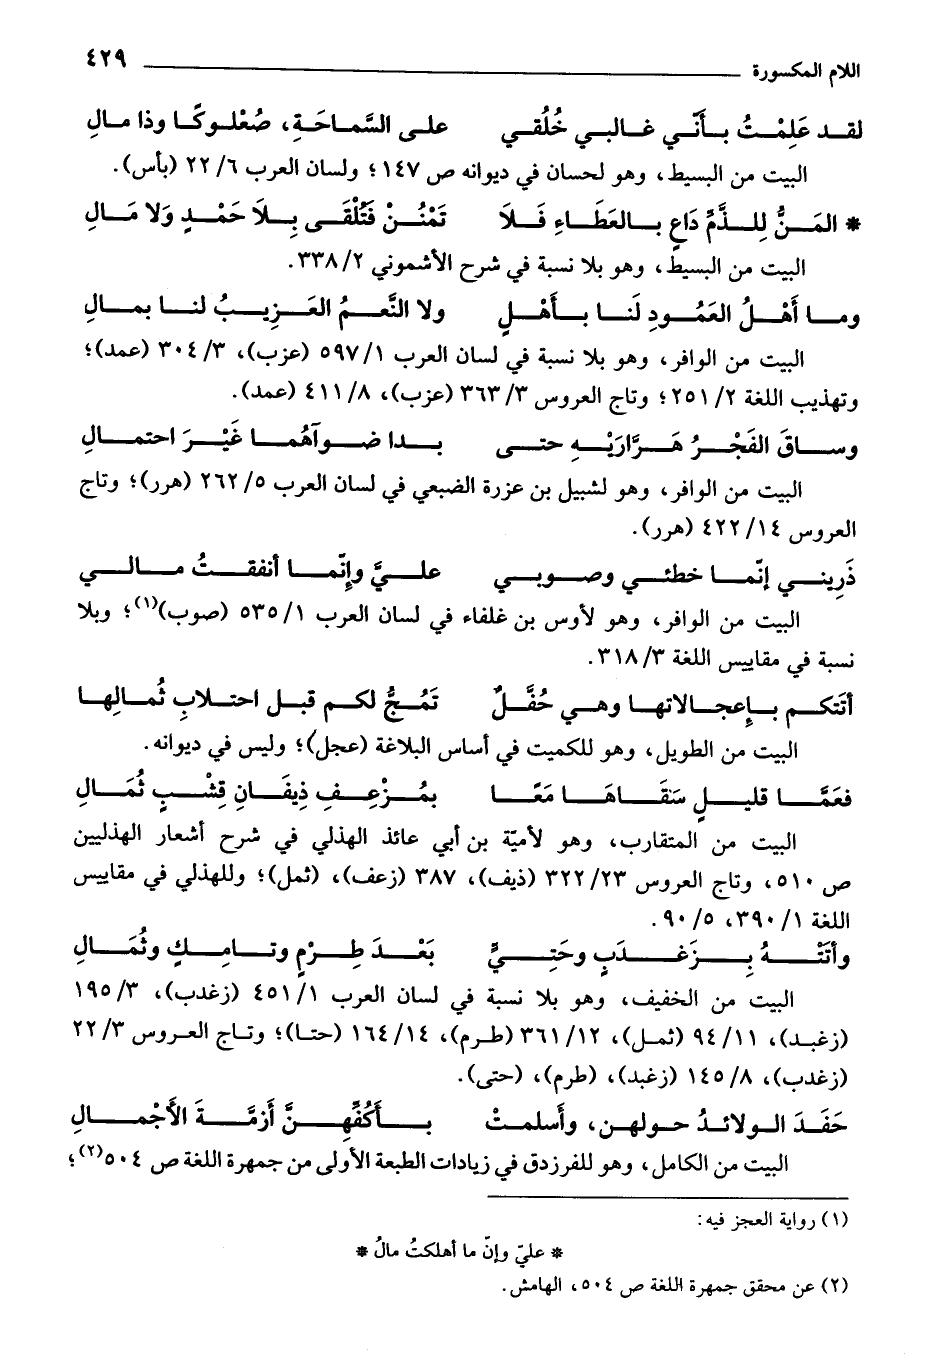 اللام المكسورة ٤٢٩
لقد عَلِمْتُ بأنّي غالبي خُلُقي على السَّماحَةِ، صُعْلوكًا وذا مالِ
البيت من البسيط، وهو لحسان في ديوانه ص ١٤٧؛ ولسان العرب ٢٢/٦ (بأس).
* المَنُّ لِلذَّمِّ دَاعٍ بالعَطَاءِ فَلاَ تَمْنُنْ فَتُلْقَى بِلاَ حَمْدٍ وَلا مَالِ
البيت من البسيط، وهو بلا نسبة في شرح الأشموني ٣٣٨/٢.
وما أَهْلُ العَمُودِ لَنا بأَهْلٍ ولا النَّعمُ العَزِيبُ لنا بمالِ
البيت من الوافر، وهو بلا نسبة في لسان العرب ٥٩٧/١ (عزب)، ٣٠٤/٣ (عمد)؛
وتهذيب اللغة ٢٥١/٢؛ وتاج العروس ٣٦٣/٣ (عزب)، ٤١١/٨ (عمد).
وساقَ الفَجْرُ هَرَّارَيْهِ حتى بدا ضوآهُما غَيْرَ احتمالِ
البيت من الوافر، وهو لشبيل بن عزرة الضبعي في لسان العرب ٢٦٢/٥ (هرر)؛ وتاج
العروس ٤٢٢/١٤ (هرر).
ذَرِيني إنّما خطئي وصوبي عليَّ وإنّما أنفقتُ مالي
البيت من الوافر، وهو لأوس بن غلفاء في لسان العرب ٥٣٥/١ (صوب)(١)؛ وبلا
نسبة في مقاييس اللغة ٣١٨/٣.
أتتكم بإعجالاتها وهي حُفَّلٌ تَمُجُّ لكم قبل احتلابِ ثُمالِها
البيت من الطويل، وهو للكميت في أساس البلاغة (عجل)؛ وليس في ديوانه.
فعَمَّا قليلٍ سَقَاهَا مَعًا بمُزْعِفِ ذِيفَانِ قِشْبٍ ثُمَالِ
البيت من المتقارب، وهو لأميّة بن أبي عائذ الهذلي في شرح أشعار الهذليين
ص ٥١٠، وتاج العروس ٣٢٢/٢٣ (ذيف)، ٣٨٧ (زعف)، (ثمل)؛ وللهذلي في مقاييس
اللغة ٣٩٠/١، ٩٠/٥.
وأتَتْهُ بِزَغْدَبٍ وحَتِيٍّ بَعْدَ طِرْمٍ وتامِكٍ وثُمَالِ
البيت من الخفيف، وهو بلا نسبة في لسان العرب ٤٥١/١ (زغدب)، ١٩٥/٣
(زغبد)، ٩٤/١١ (ثمل)، ٣٦١/١٢ (طرم)، ١٦٤/١٤ (حتا)؛ وتاج العروس ٢٢/٣
(زغدب)، ١٤٥/٨ (زغبد)، (طرم)، (حتى).
حَفَدَ الولائدُ حولهن، وأسلمتْ بأكُفِّهِنَّ أزِمَّةَ الأجْمالِ
البيت من الكامل، وهو للفرزدق في زيادات الطبعة الأولى من جمهرة اللغة ص ٥٠٤(٢)؛
(١) رواية العجز فيه:
* عليّ وإنّ ما أهلكتُ مالُ *
(٢) عن محقق جمهرة اللغة ص ٥٠٤، الهامش.